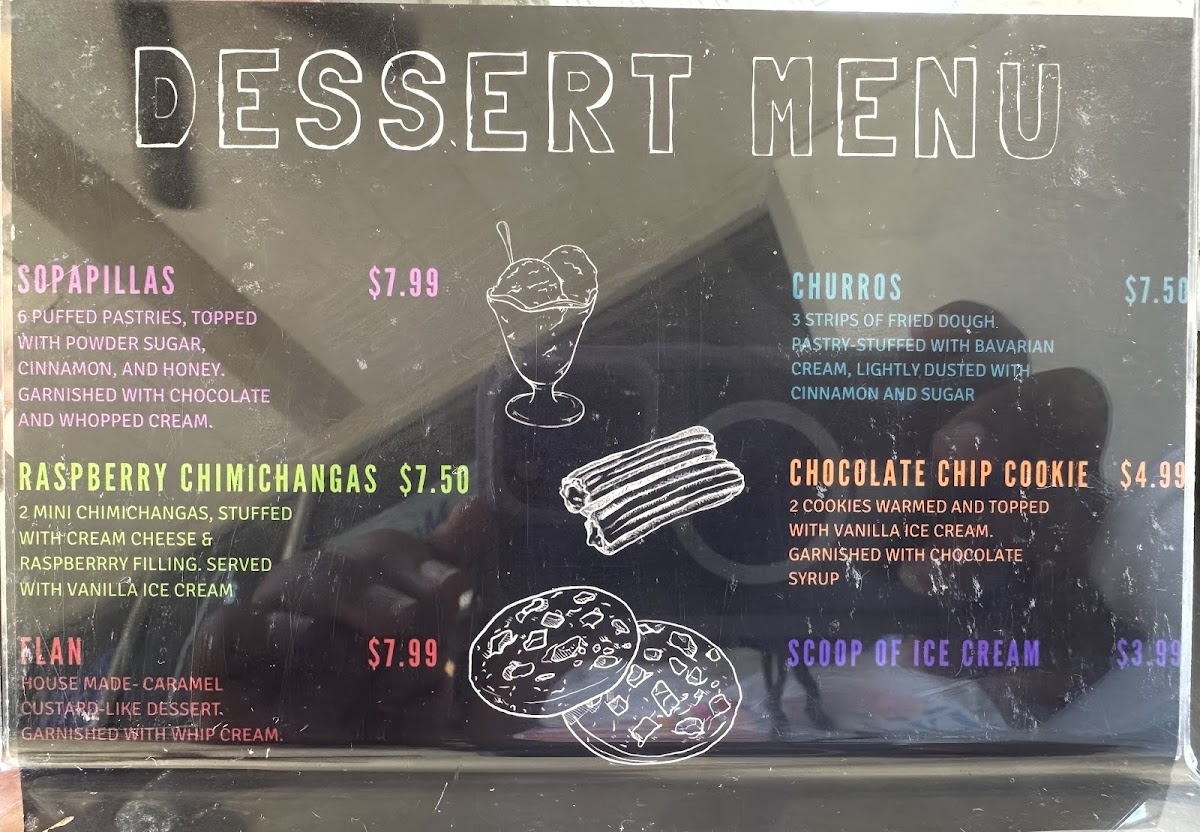 DESSERT MENU
SOPAPILLAS $7.99
6 PUFFED PASTRIES, TOPPED
WITH POWDER SUGAR,
CINNAMON, AND HONEY.
GARNISHED WITH CHOCOLATE
AND WHOPPED CREAM.
RASPBERRY CHIMICHANGAS $7.50
2 MINI CHIMICHANGAS, STUFFED
WITH CREAM CHEESE &
RASPBERRRY FILLING. SERVED
WITH VANILLA ICE CREAM
FLAN $7.99
HOUSE MADE- CARAMEL
CUSTARD-LIKE DESSERT.
GARNISHED WITH WHIP CREAM.
CHURROS $7.50
3 STRIPS OF FRIED DOUGH.
PASTRY-STUFFED WITH BAVARIAN
CREAM, LIGHTLY DUSTED WITH
CINNAMON AND SUGAR
CHOCOLATE CHIP COOKIE $4.99
2 COOKIES WARMED AND TOPPED
WITH VANILLA ICE CREAM.
GARNISHED WITH CHOCOLATE
SYRUP
SCOOP OF ICE CREAM $3.99